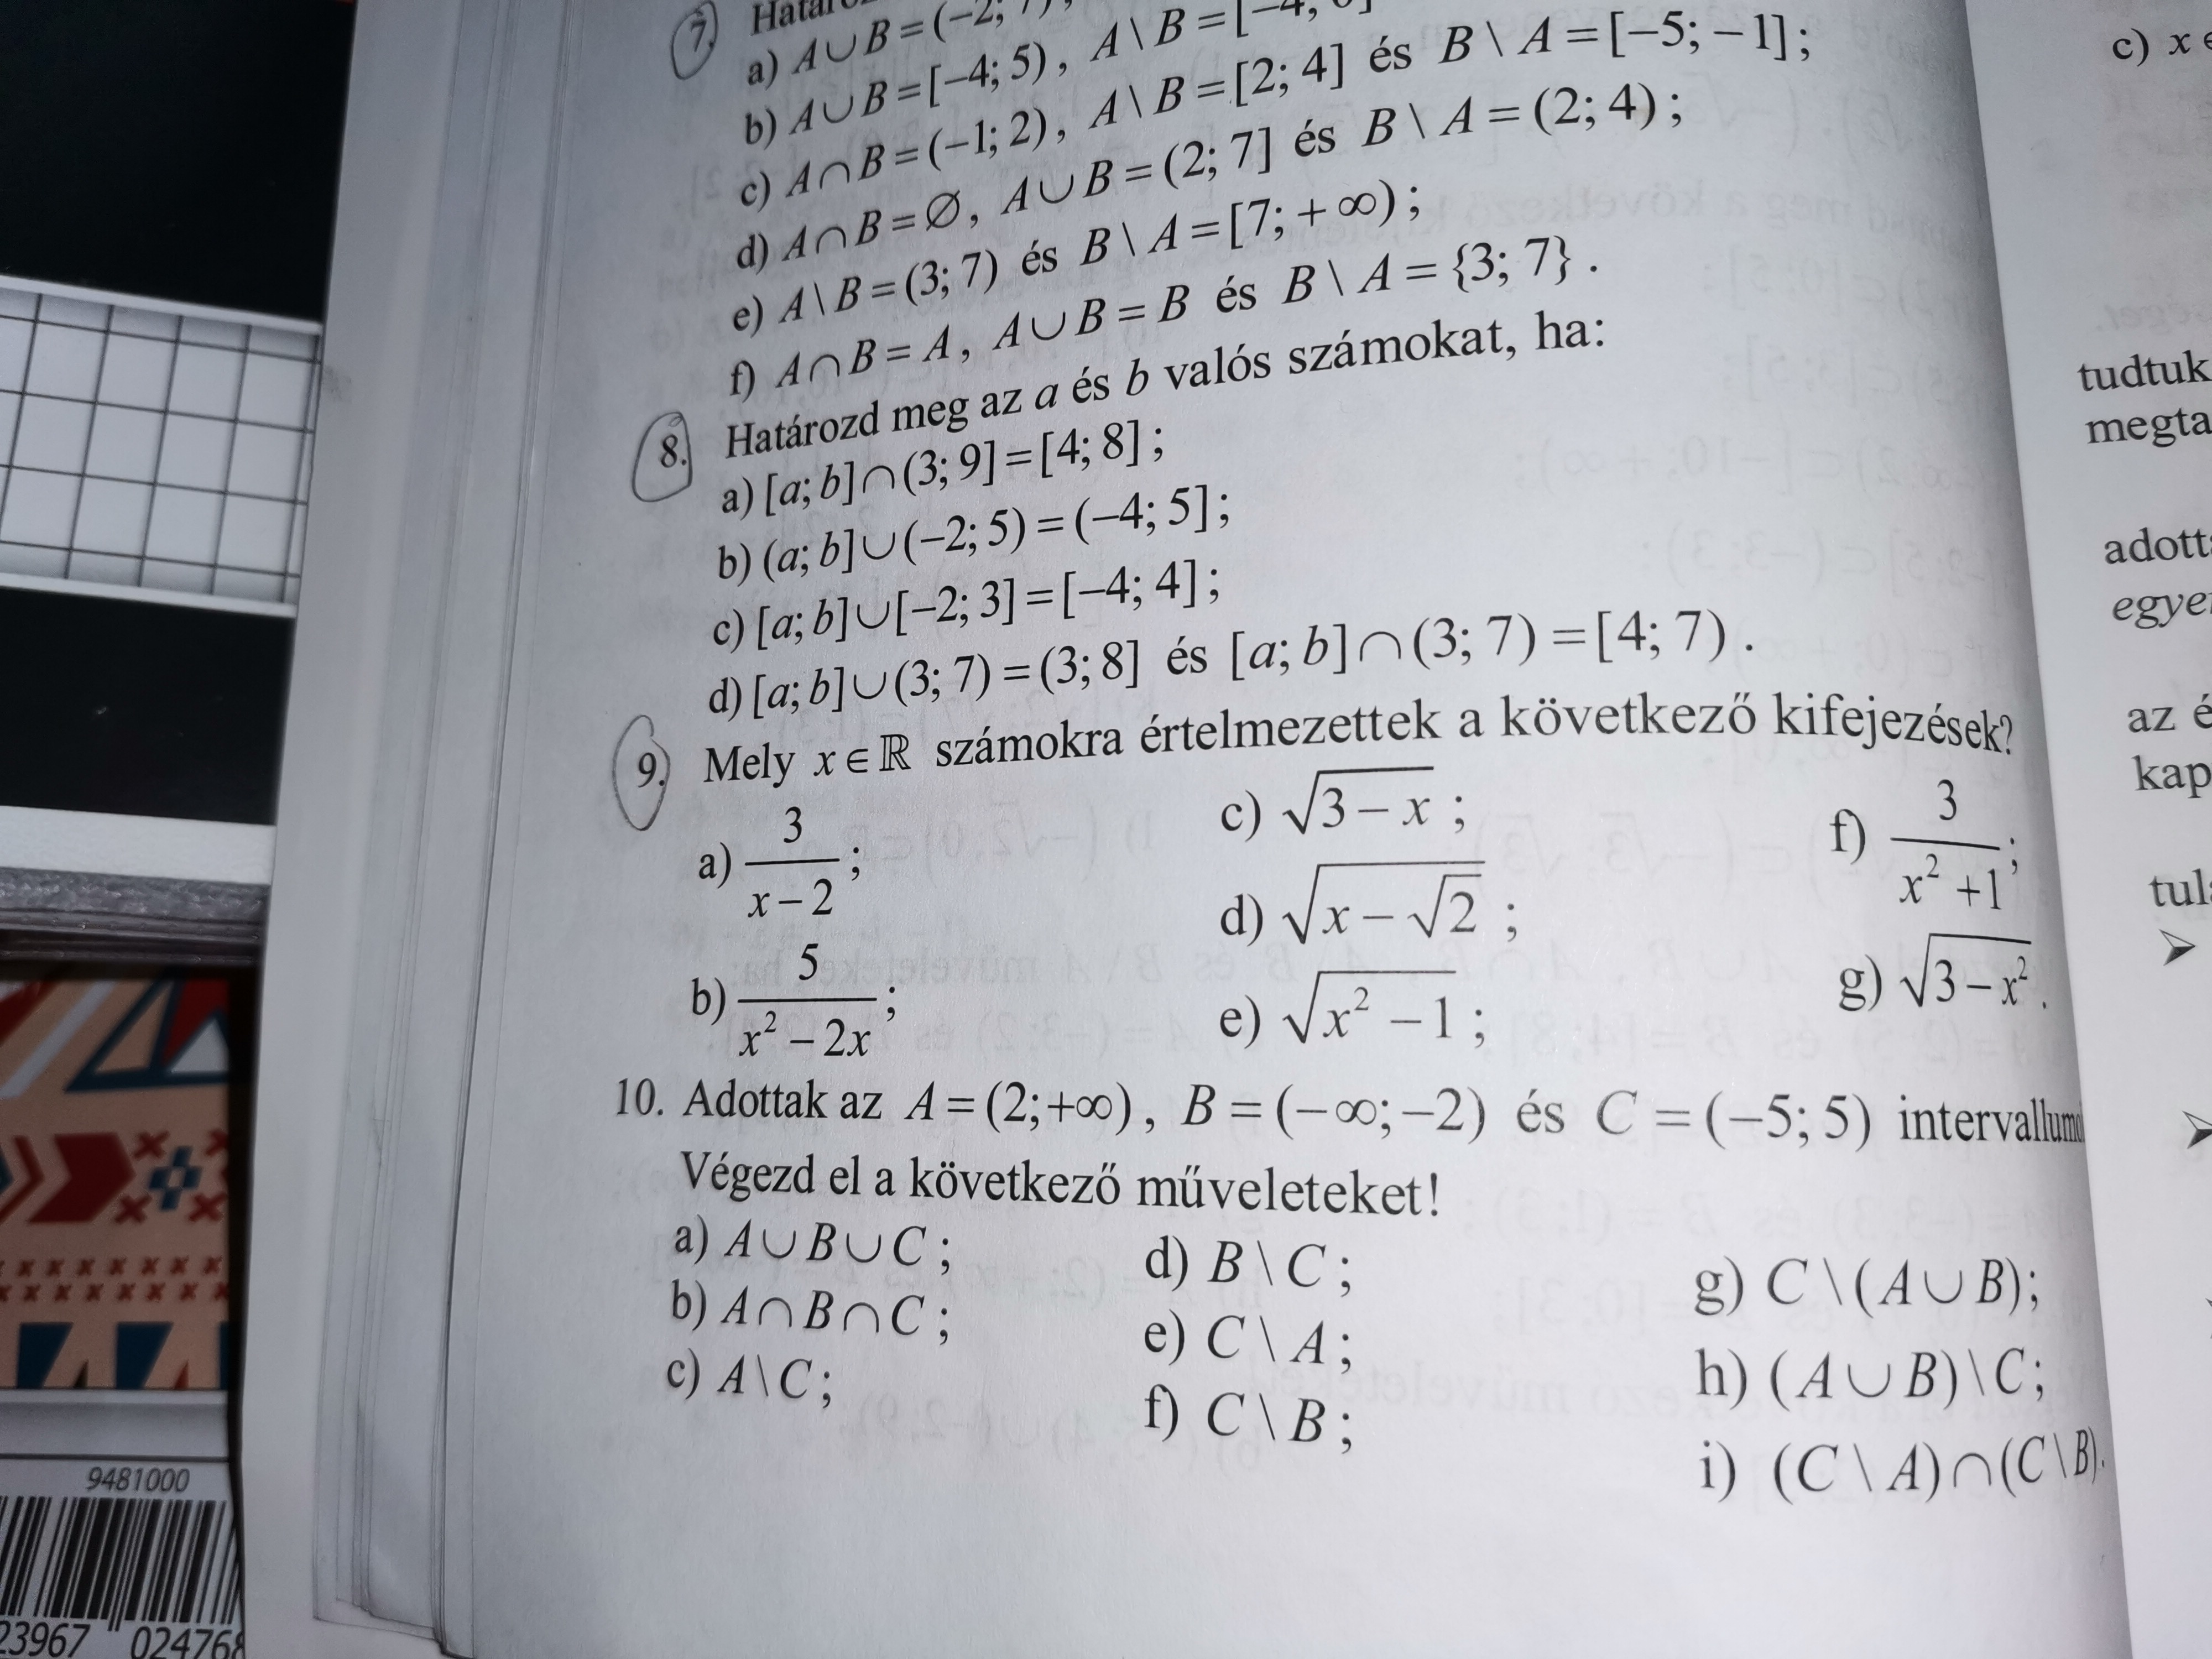 7.
a) A∪B=(−2;
b) A∪B=[−4; 5), A\B=[−4;
c) A∩B=(−1; 2), A\B=[2; 4] és B\A=[−5; −1];
d) A∩B=∅, A∪B=(2; 7] és B\A=(2; 4);
e) A\B=(3; 7) és B\A=[7; +∞);
f) A∩B=A, A∪B=B és B\A={3; 7}.
8. Határozd meg az a és b valós számokat, ha:
a) [a; b]∩(3; 9]=[4; 8];
b) (a; b]∪(−2; 5)=(−4; 5];
c) [a; b]∪[−2; 3]=[−4; 4];
d) [a; b]∪(3; 7)=(3; 8] és [a; b]∩(3; 7)=[4; 7).
9. Mely x∈ℝ számokra értelmezettek a következő kifejezések?
a) 3/(x−2);
b) 5/(x²−2x);
c) √(3−x);
d) √(x−√2);
e) √(x²−1);
f) 3/(x²+1);
g) √(3−x²).
10. Adottak az A=(2;+∞), B=(−∞;−2) és C=(−5; 5)
Végezd el a következő műveleteket!
a) A∪B∪C;
b) A∩B∩C;
c) A\C;
d) B\C;
e) C\A;
f) C\B;
g) C\(A∪B);
h) (A∪B)\C;
i) (C\A)∩(C\B).
c) x
tudtuk
az
kap
9481000
23967 024768